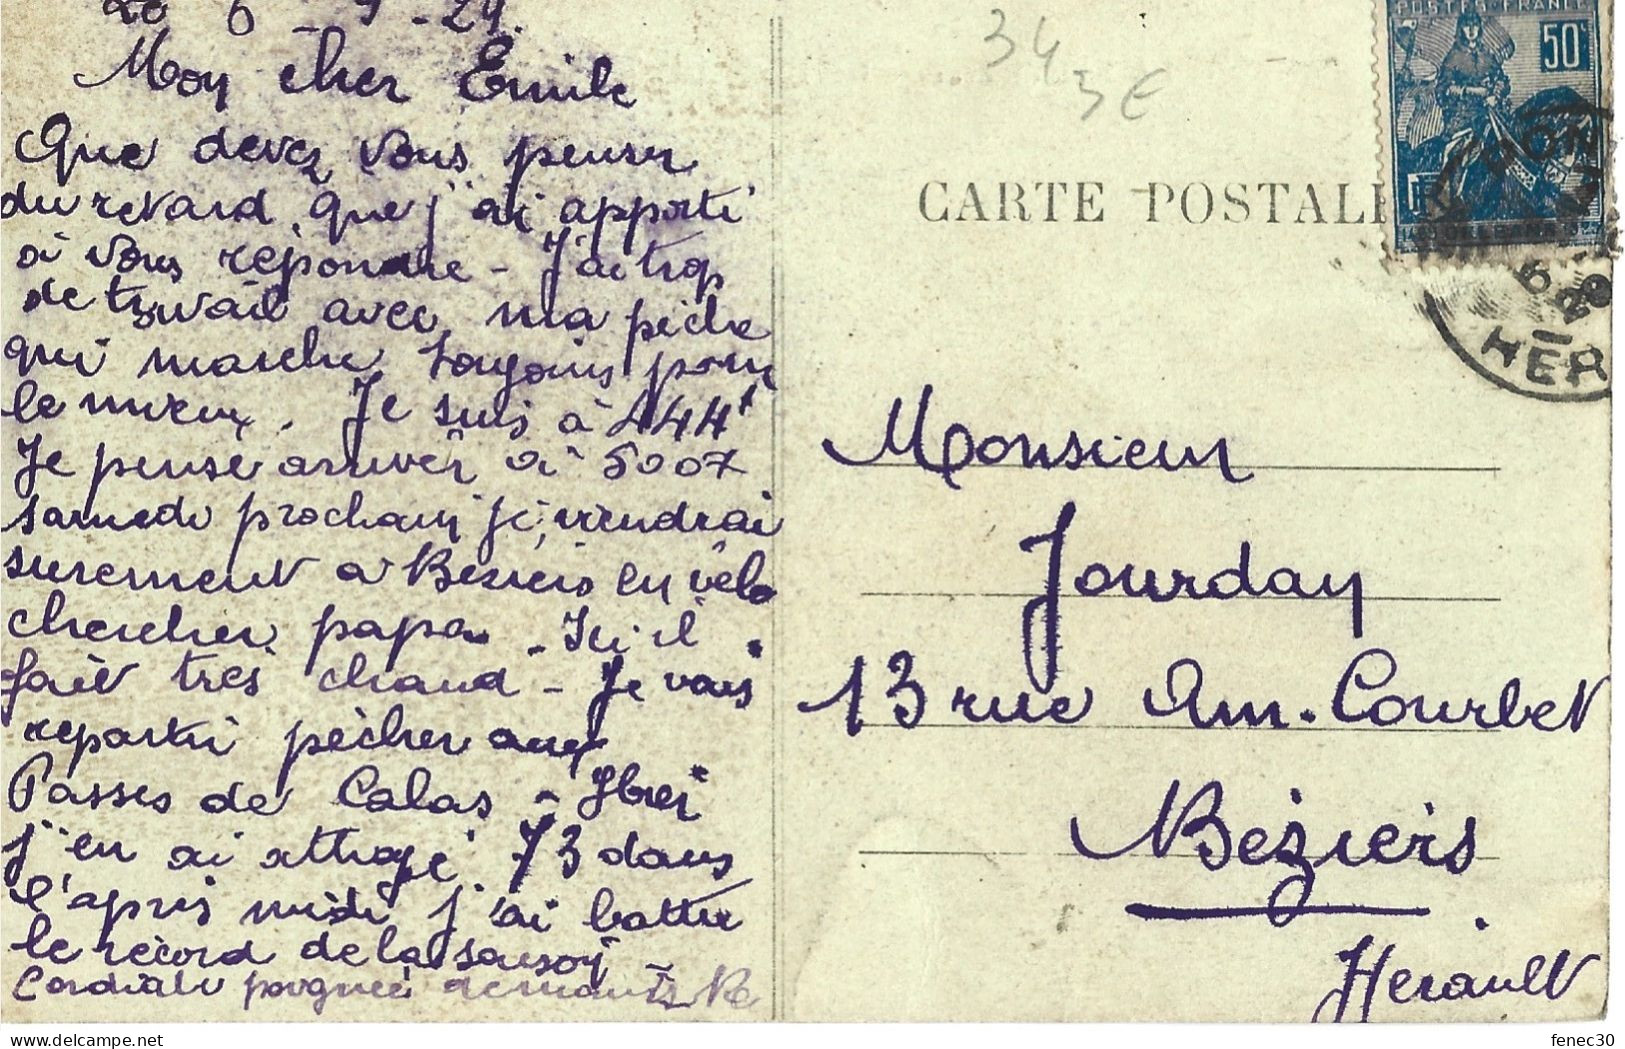 6 - 9 - 29.
Mon cher Emile
Que devez vous penser
du retard que j'ai apporté
à vous répondre - J'ai trop
de travail avec ma pêche
qui marche toujours pour
le mieux. Je suis à 444
Je pense arriver à 500
samedi prochain je viendrai
surement à Béziers en vélo
chercher papa - Ici il
fait très chaud - Je vais
repartir pêcher aux
Passes de Calas - Hier
j'en ai attrapé 73 dans
l'après midi j'ai battu
le record de la saison -
Cordiale poignée de mains
34
3€
CARTE POSTALE
POSTES FRANCE
50c
HER
Monsieur
Jourdan
13 rue Am. Courbet
Béziers
Hérault
delcampe.net
fenec30